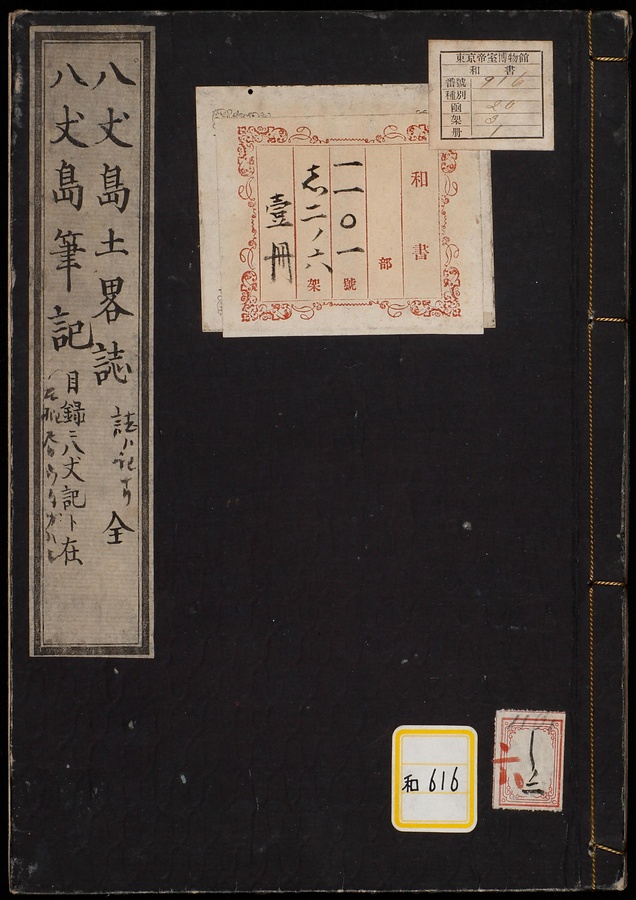 八丈島土畧誌
誌ハ記ナリ
全
八丈島筆記
目録ニ八丈記ト在
和書
部
一一〇一號
志二ノ六架
壹冊
東京帝室博物館
和書
番號 916
種別
函 20
架 3
册 1
和616